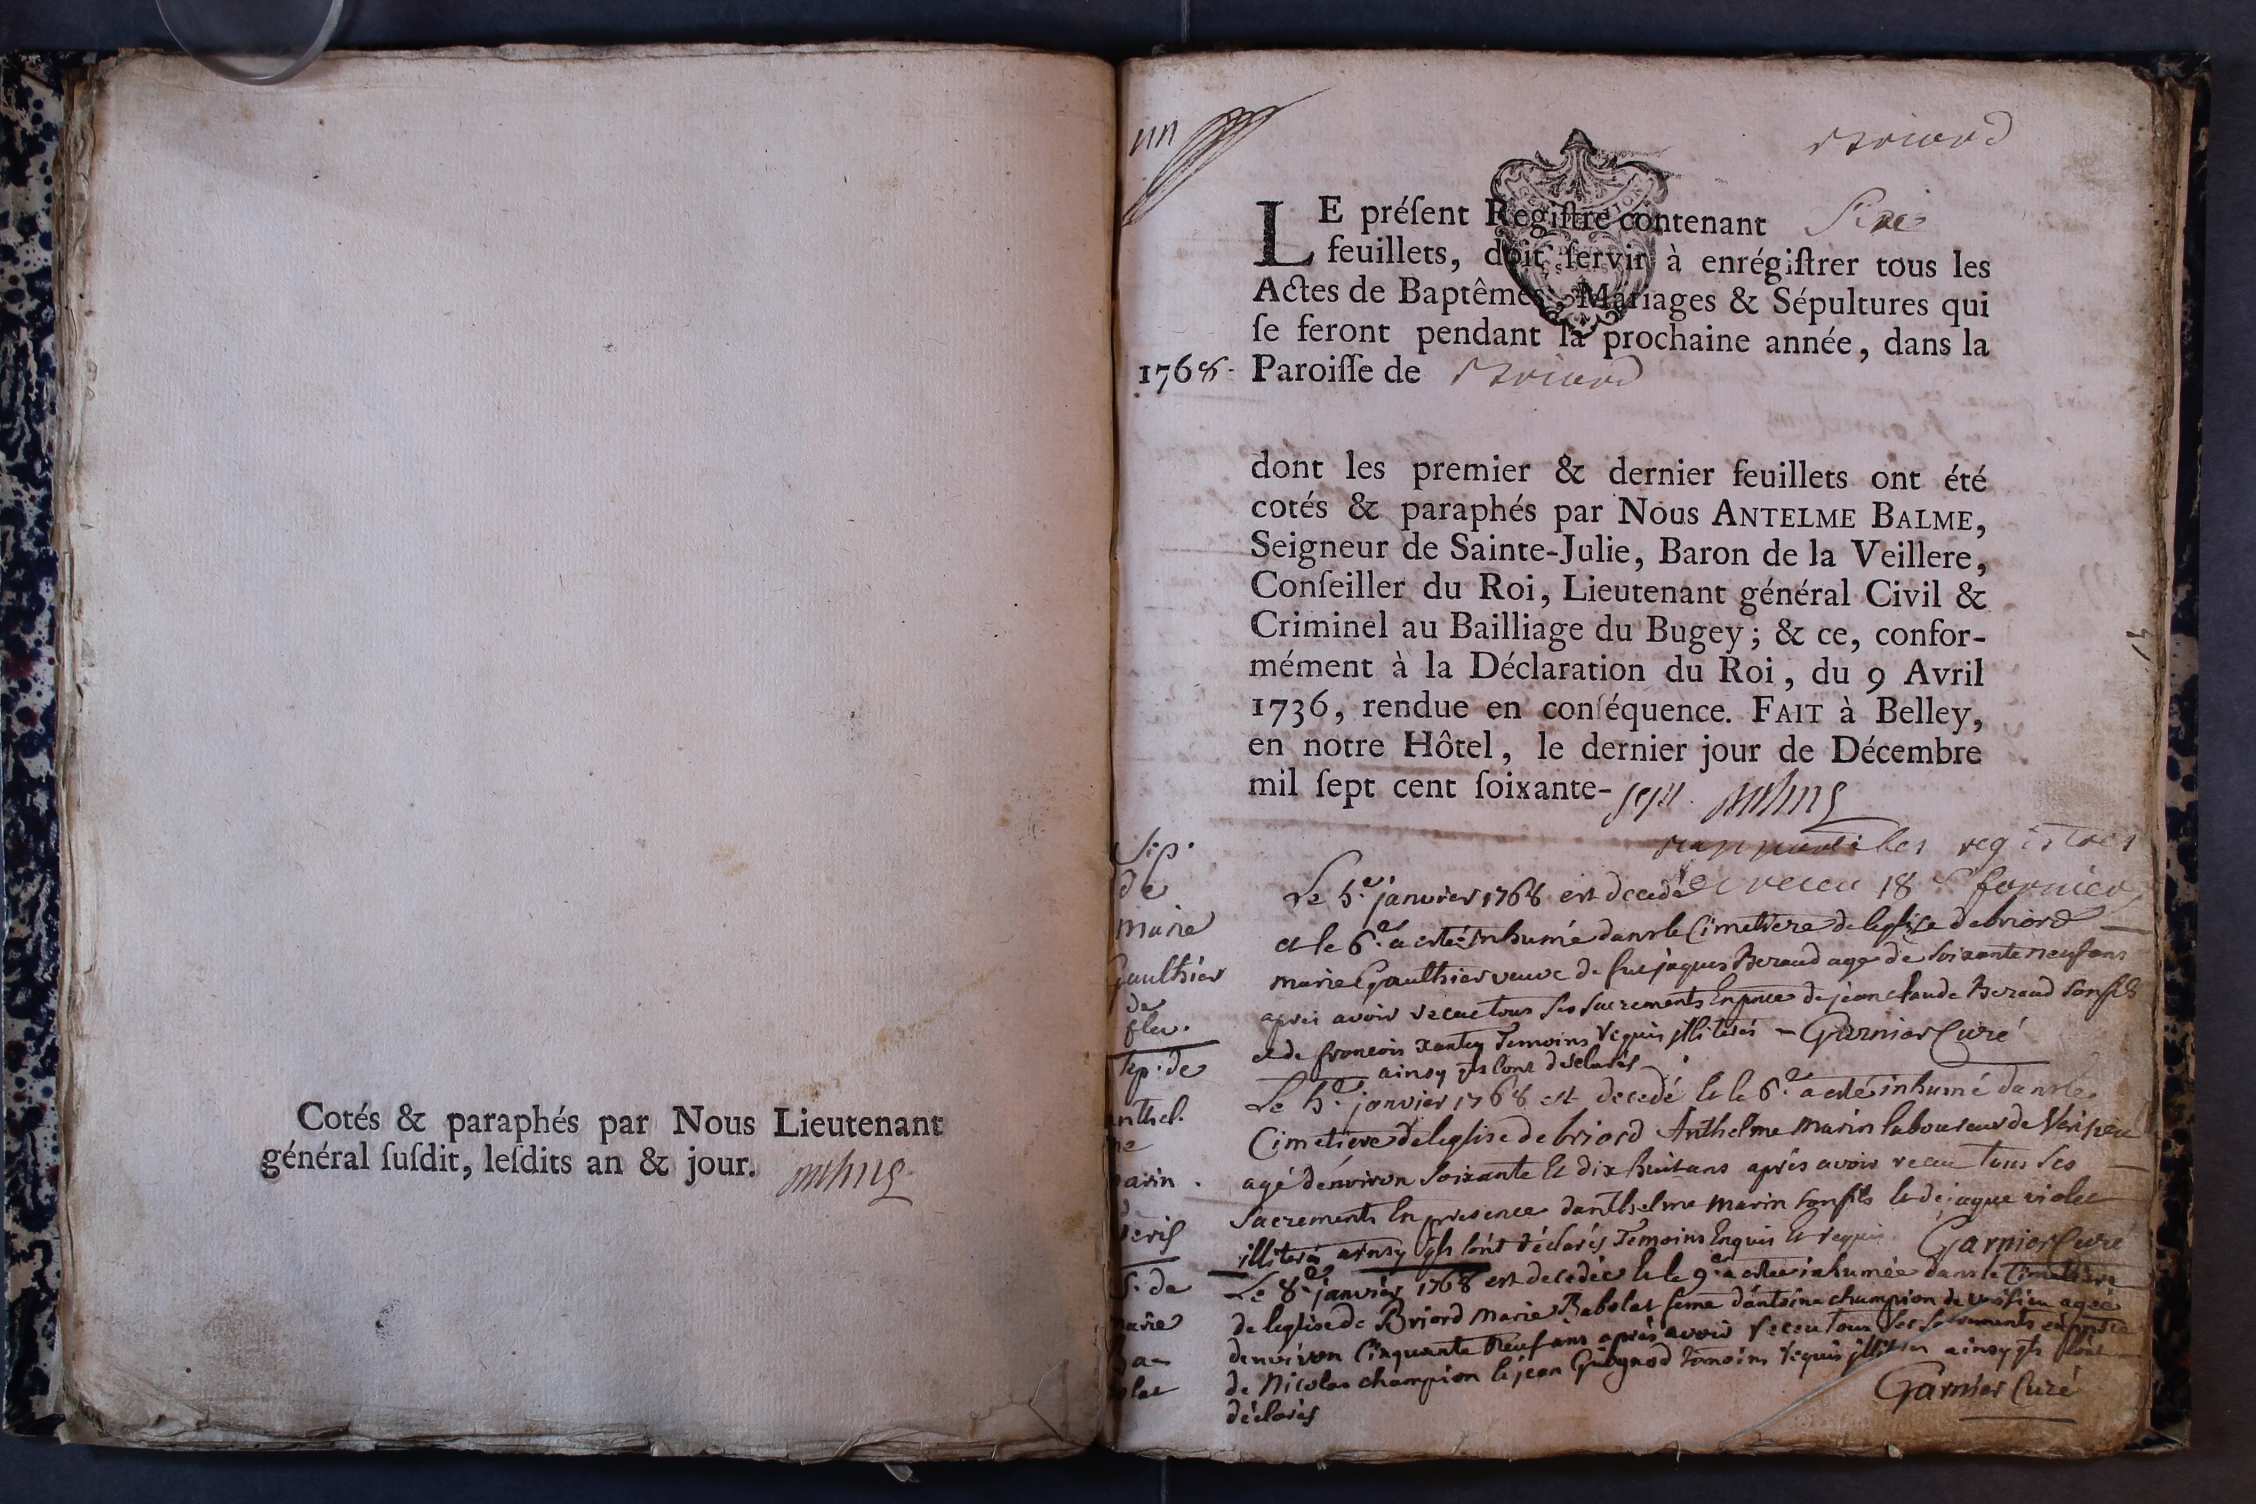 Cotés & paraphés par Nous Lieutenant
général ſuſdit, leſdits an & jour.
Briord
LE préſent Regiſtre contenant
feuillets, doit ſervir à enrégiſtrer tous les
Actes de Baptêmes, Mariages & Sépultures qui
ſe feront pendant la prochaine année, dans la
1768. Paroiſſe de Briord
dont les premier & dernier feuillets ont été
cotés & paraphés par Nous ANTELME BALME,
Seigneur de Sainte-Julie, Baron de la Veillere,
Conſeiller du Roi, Lieutenant général Civil &
Criminel au Bailliage du Bugey; & ce, confor-
mément à la Déclaration du Roi, du 9 Avril
1736, rendue en conſéquence. FAIT à Belley,
en notre Hôtel, le dernier jour de Décembre
mil ſept cent ſoixante-sept.
les registres
et receu 18
Sep.
de
marie
Gaulthier
de
feu.
Le 5e janvier 1768 est decedé
et le 6e a esté inhumé dans le Cimetiere de leglise de briord
marie Gaulthier veuve de feu jaques Beraud agé de soixante neuf ans
apres avoir receu tous ses sacrements En pnce de jean claude Beraud son fils
et de francois Temoins requis illiterés Garnier Curé
ainsy qls sont déclarés
Sep. de
anthel.
me
marin
Veris
Le 5e janvier 1768 est decedé et le 6e a esté inhumé dans le
Cimetiere de leglise de briord Anthelme marin laboureur de Verisieu
agé d'environ soixante et dix huit ans aprés avoir receu tous ses
sacrements En presence danthelme marin son fils et de jaque violet
illiterés ainsy qls sont déclarés Temoins Enquis et requis Garnier Curé
S. de
marie
Ba-
bolat
Le 8e janvier 1768 est decedée et le 9e a estee inhumée dans le Cimetiere
de leglise de Briord Marie Babolat feme d'antoine champion de Verisieu agée
denviron Cinquante Neuf ans aprés avoir receu tous ses sacrements en pnce
de Nicolas champion et jean Guignod temoins requis ainsy qls sont
déclarés
Garnier Curé